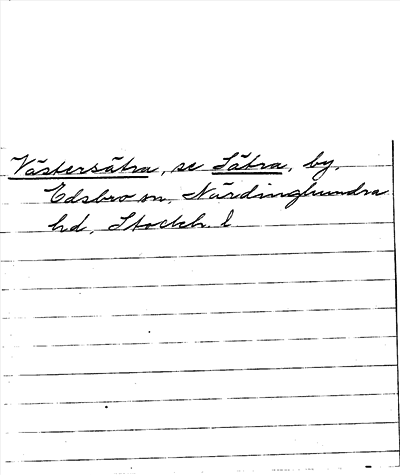 Västersätra, se Sätra, by,
Edsbro sn, Närdinghundra
hd, Stockh. l